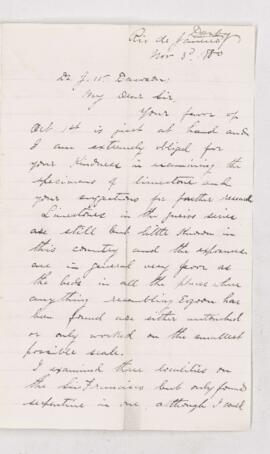 Derby
Rio de Janeiro
Nov 3d 1880
Dr J. W. Dawson
My Dear Sir,
Your favor of
Oct 1st is just at hand and
I am extremely obliged for
your kindness in examining the
specimens of limestone and
your suggestions for further research
Limestones in the gneiss series
are still but little known in
this country and the exposures
are in general very poor as
the beds in all the places where
any thing resembling Eozoon has
been found are either untouched
or only worked on the smallest
possible scale.
I examined three localities on
the San Francisco but only found
serpentine in one, although I could